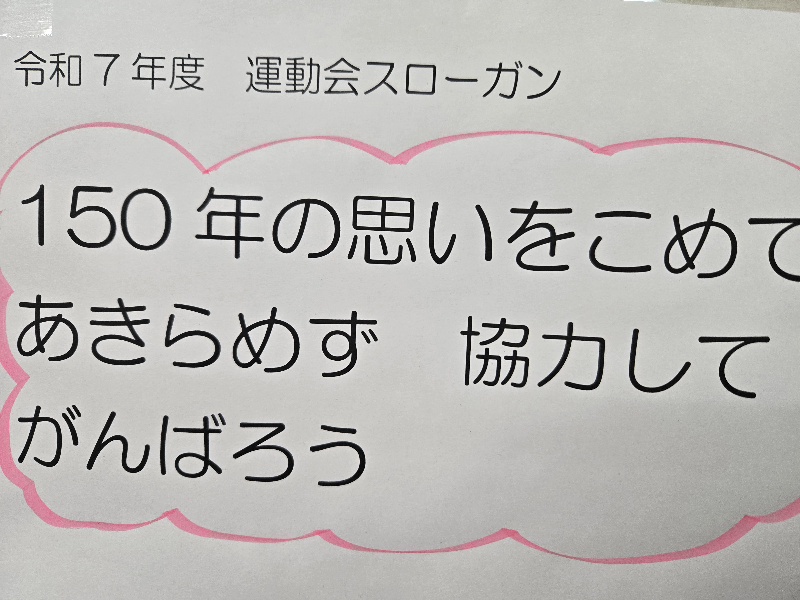 令和７年度　運動会スローガン
150年の思いをこめて
あきらめず　協力して
がんばろう